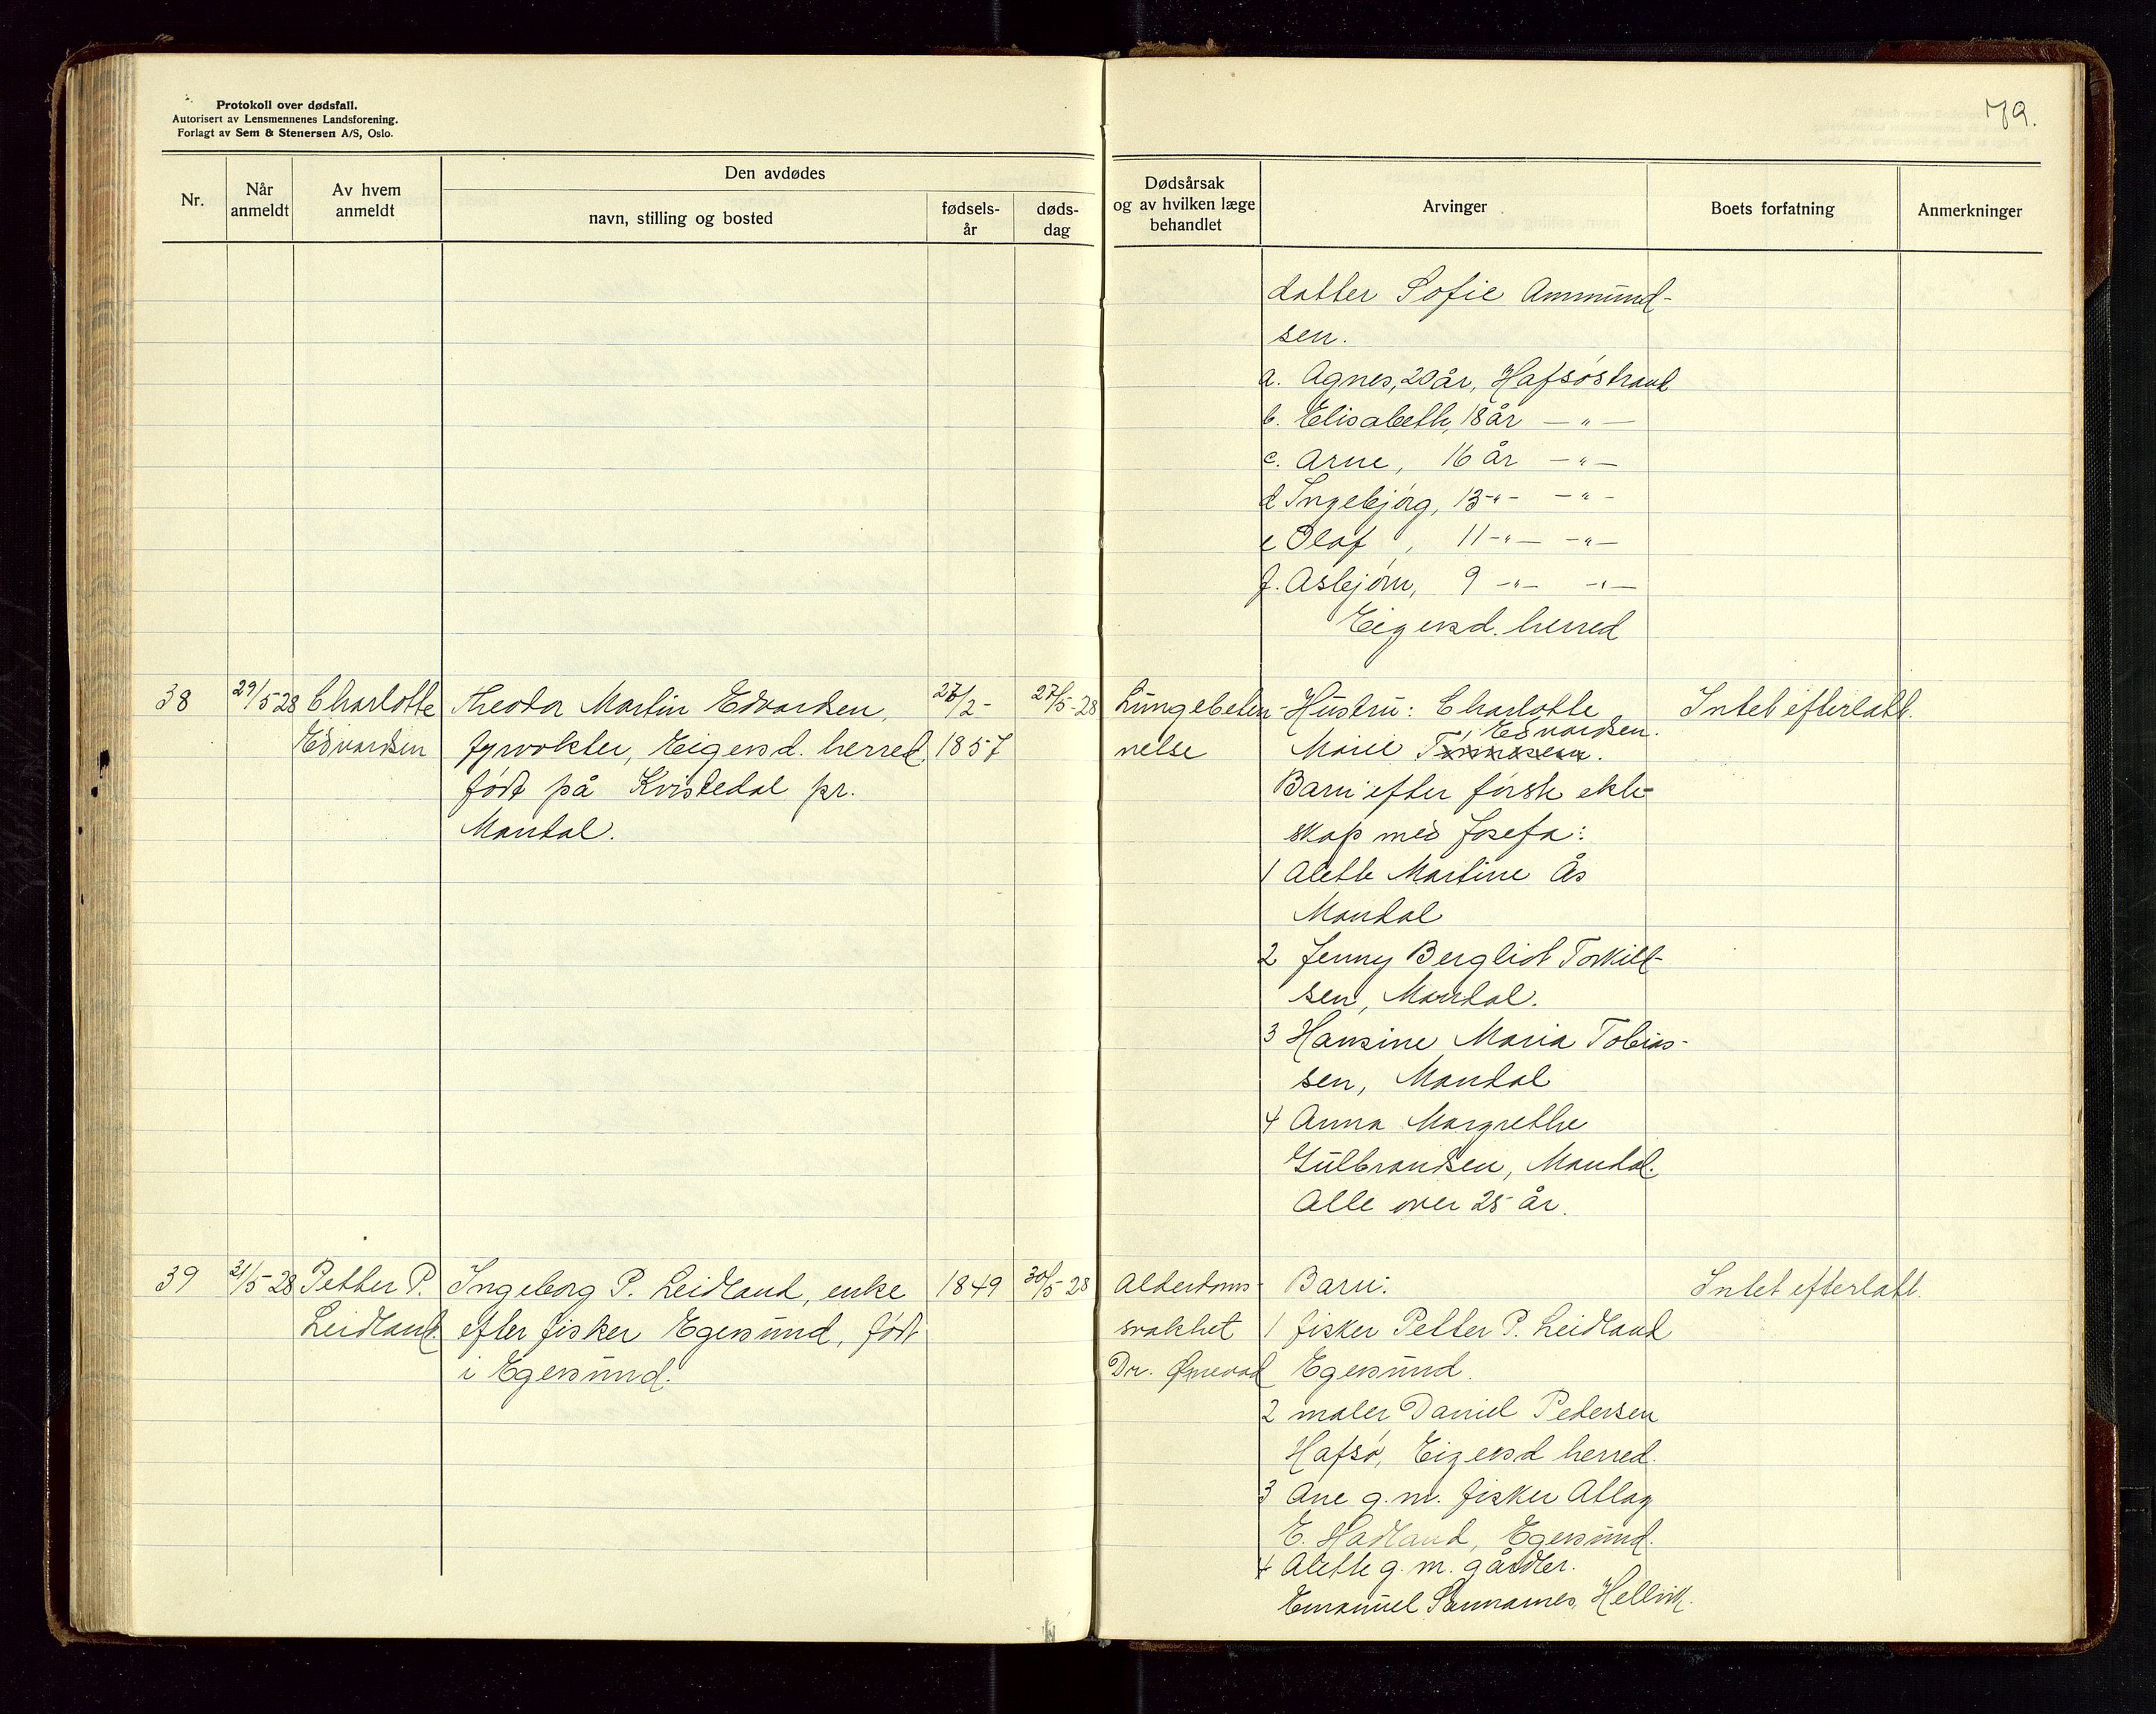 Protokoll over dødsfall.
Autorisert av Lensmennenes Landsforening.
Forlagt av Sem & Stenersen A/S, Oslo.
79.
Nr.
Når anmeldt
Av hvem anmeldt
Den avdødes
navn, stilling og bosted
fødselsår
dødsdag
Dødsårsak og av hvilken læge behandlet
Arvinger
Boets forfatning
Anmerkninger
datter Sofie Ammund-
sen.
a. Agnes, 20 år, Hafsøstrand
b. Elisabeth, 18 år — " —
c. Arne, 16 år — " —
d Ingebjørg, 13 - " - — " —
e Olaf, 11 - " — - " —
f. Asbjørn, 9 - " — - " —
Eigersd. herred
38 29/5 28 Charlotte Theodor Martin Edvardsen, 26/2- 27/5-28 Lungebeten- Hustru: Charlotte Intet efterlatt.
Edvardsen fyrvokter, Eigersd. herred 1857 nelse Marie Edvardsen.
født på Kvistedal pr. Barn efter første ekte-
Mandal. skap med Josefa:
1 Alette Martine Ås
Mandal
2 Jenny Bergliot Torkild-
sen, Mandal.
3 Hansine Maria Tobias-
sen, Mandal
4 Anna Margrethe
Gulbrandsen, Mandal.
Alle over 25 år.
39 31/5-28 Petter P. Ingeborg P. Leidland, enke 1849 30/5-28 Alderdoms- Barn: Intet efterlatt.
Leidland. efter fisker Egersund, født svakhet 1 fisker Petter P. Leidland
i Egersund. Dr. Egersund.
2 maler Daniel Pedersen
Hafsø, Eigersd herred.
3 Ane g.m. fisker Atlag
E. Hadland, Egersund.
4 Alette g.m. gårdbr.
Emanuel Sannarnes, Hellvik.